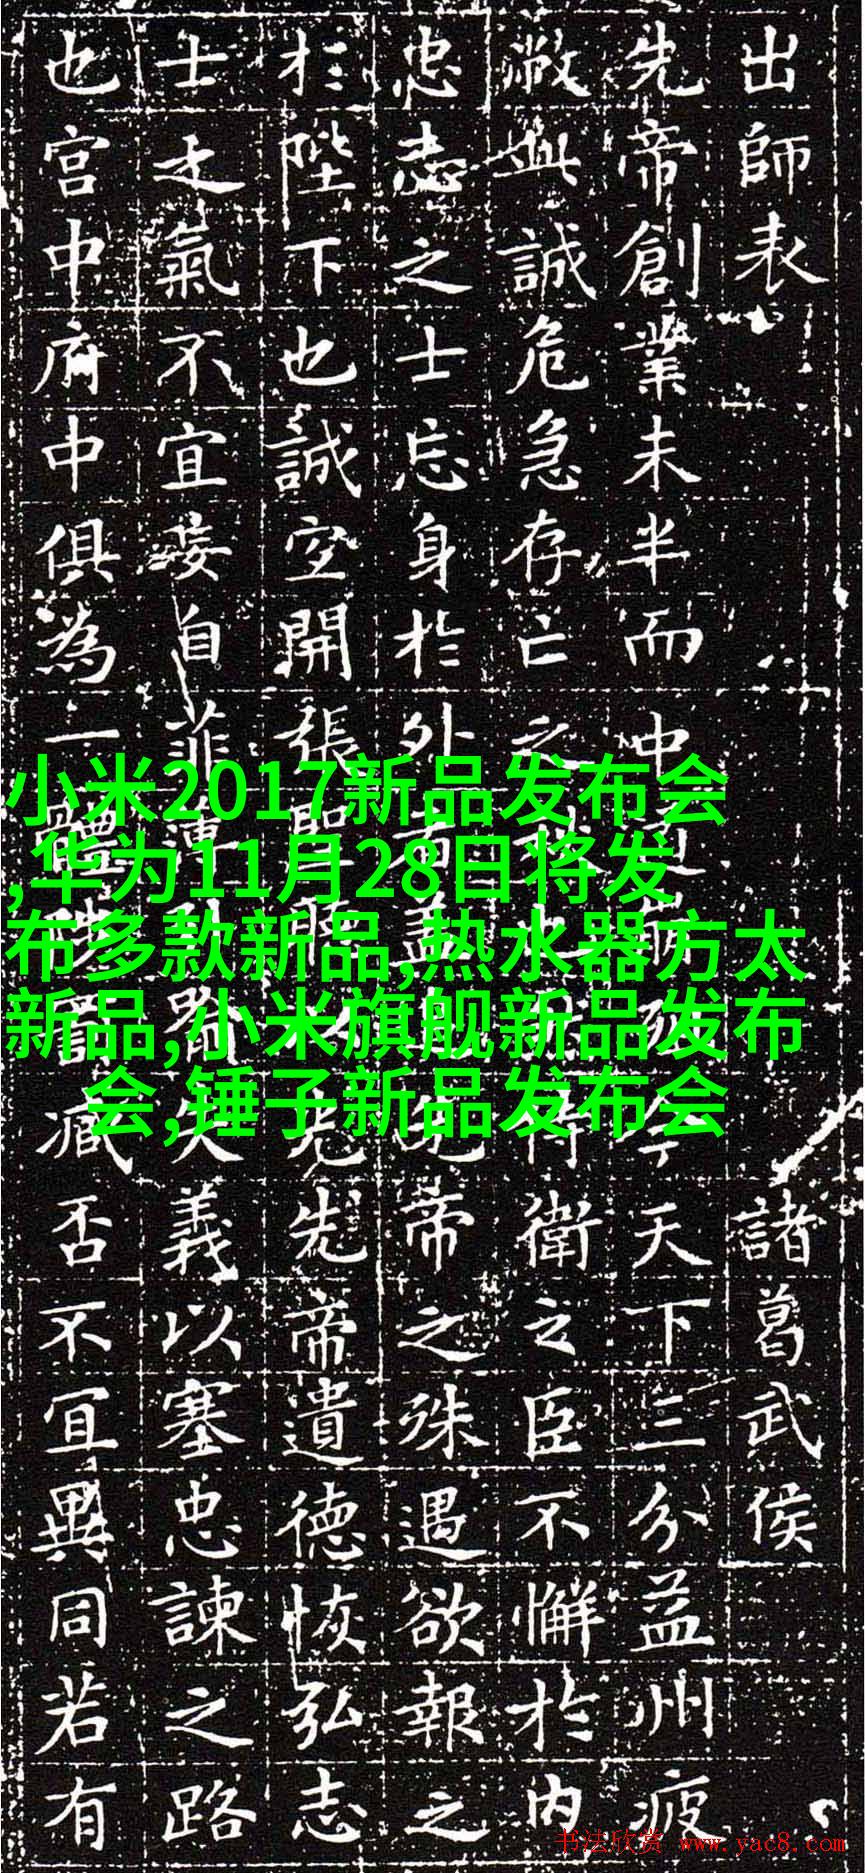 出師表
諸葛武侯
先帝創業未半而中道崩殂今天下三分益州疲
敝此誠危急存亡之秋也然侍衛之臣不懈於內
忠志之士忘身於外者蓋追先帝之殊遇欲報之
於陛下也誠宜開張聖聽以光先帝遺德恢弘志
士之氣不宜妄自菲薄引喻失義以塞忠諫之路
也宮中府中俱為一體陟罰臧否不宜異同若有
小米2017新品发布会
,华为11月28日将发
布多款新品,热水器方太
新品,小米旗舰新品发布
会,锤子新品发布会
书法欣赏 www.yac8.com